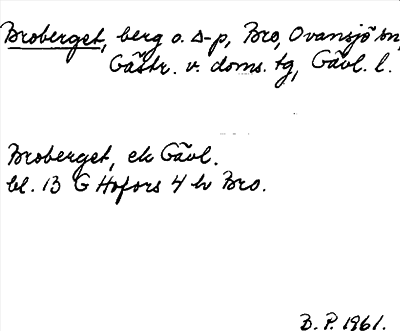 Broberget, berg o. Δ-p, Bro, Ovansjö sn,
Gästr. v. doms. tg, Gävl. l.
Broberget, ek Gävl.
bl. 13 G Hofors 4 h Bro.
B. P. 1961.